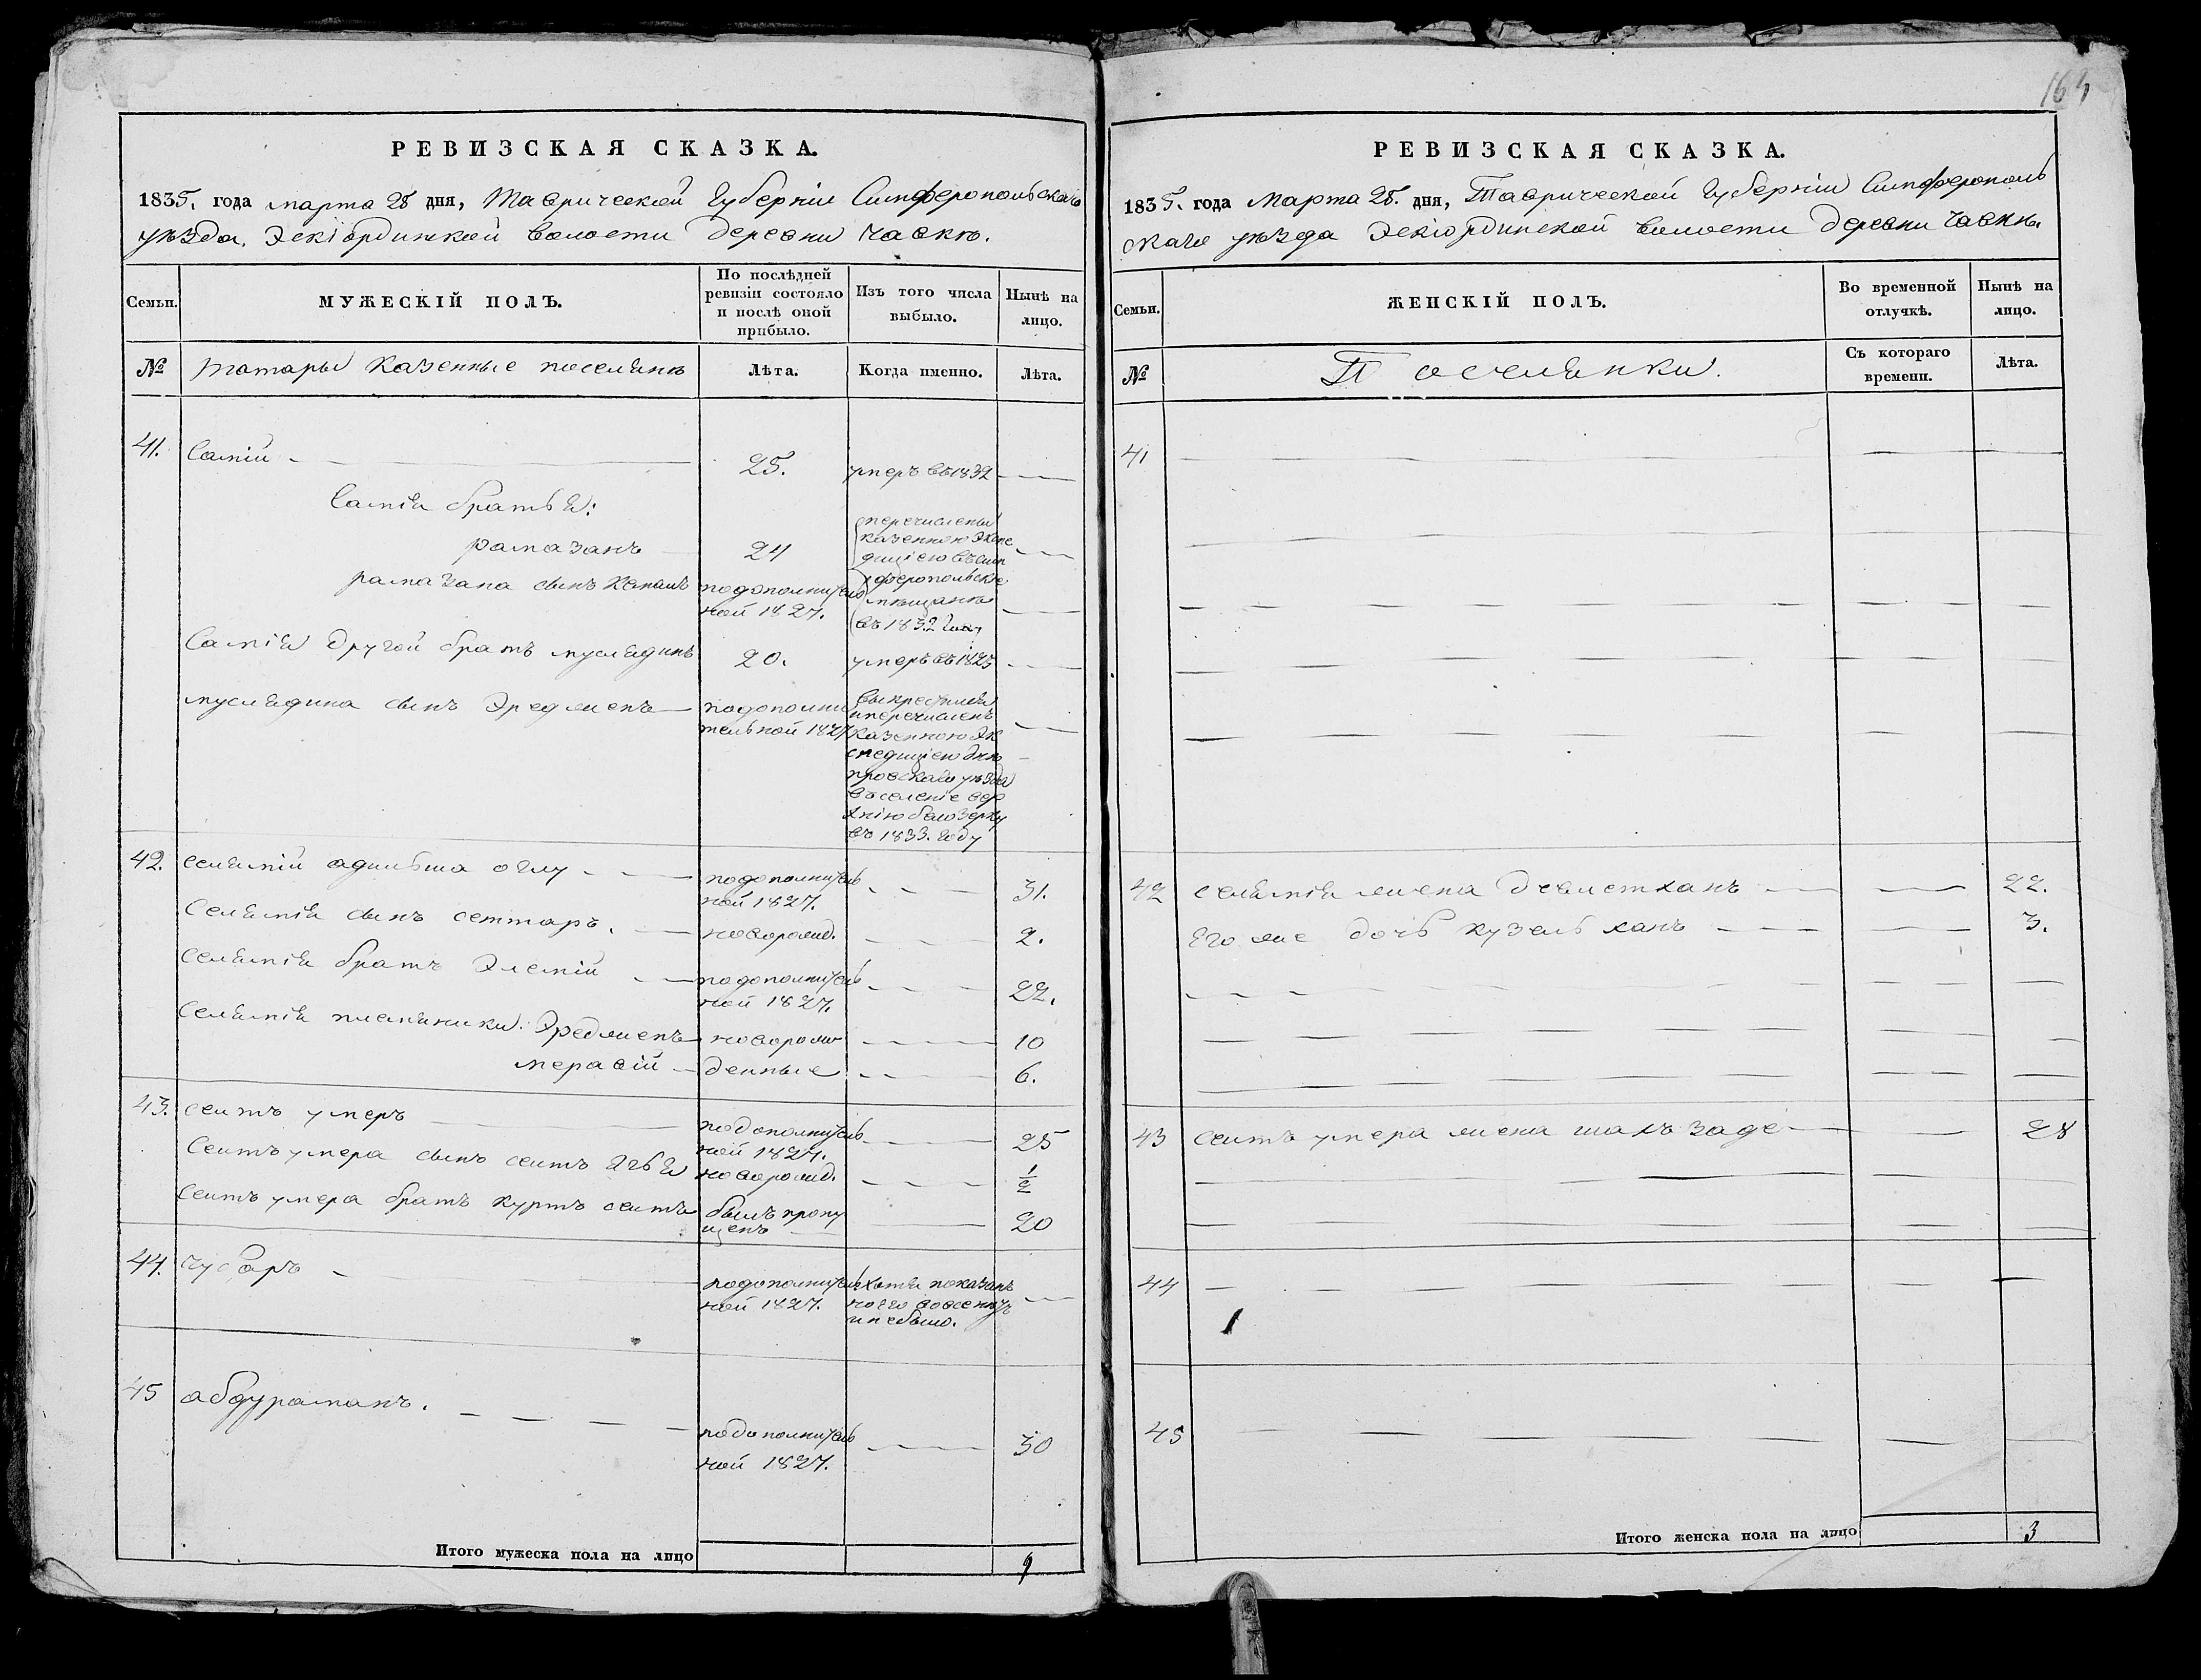 РЕВИЗСКАЯ СКАЗКА.
1835. года марта 28 дня, Таврической Губернии Симферопольскаго
уѣзда, Эскіординской волости деревни Чавке.
Семьи.
МУЖЕСКІЙ ПОЛЪ.
По послѣдней
ревизіи состояло
и послѣ оной
прибыло.
Изъ того числа
выбыло.
Нынѣ на
лицо.
№ татары казенные поселяне
Лѣта.
Когда именно.
Лѣта.
41. Самій 25. умеръ въ 1832
Самія братья:
рамазанъ 24 перечислены
казенною экспе
дициею въ сим
рамазана сынъ подополнитель феропольскіе
ной 1827. мѣщане
въ 1832 году
Самія другой братъ муслядинъ 20. умеръ въ 1825
муслядина сынъ Эреджепъ подополни
тельной 1827
выкрестился
и перечисленъ
казенною эк
спедициею Днѣ
провскаго уѣзда
въ селеніе вер
хнюю белозерку
въ 1833. году
42. селямій адильша оглу подополнитель
ной 1827. 31.
Селямія сынъ сеттаръ. новорожд. 2.
Селямія братъ подополнитель
ной 1827. 22.
Селямія племяники: Эреджепъ новорож 10
денные 6.
43. сеитъ умеръ подополнитель
ной 1827. 25
Сеитъ умера сынъ сеитъ ягья новорожд. 1/2
Сеитъ умера братъ куртъ сеитъ былъ пропу
щенъ 20
44. подополнитель хотя показанъ
ной 1827. но его вовсе
и небыло.
45 абдураманъ. подополнитель
ной 1827. 30
Итого мужеска пола на лицо 9
164
РЕВИЗСКАЯ СКАЗКА.
1835. года Марта 28. дня, Таврической Губерніи Симферополь
скаго уѣзда Эскіординской волости деревни Чавке.
Семьи.
ЖЕНСКІЙ ПОЛЪ.
Во временной
отлучкѣ.
Нынѣ на
лицо.
№ Поселянки.
Съ котораго
времени.
Лѣта.
41
42 селямія жена девлетханъ 22.
его же дочь кузель ханъ 3.
43 сеитъ умера жена шахъ заде 28
44
45
Итого женска пола на лицо 3